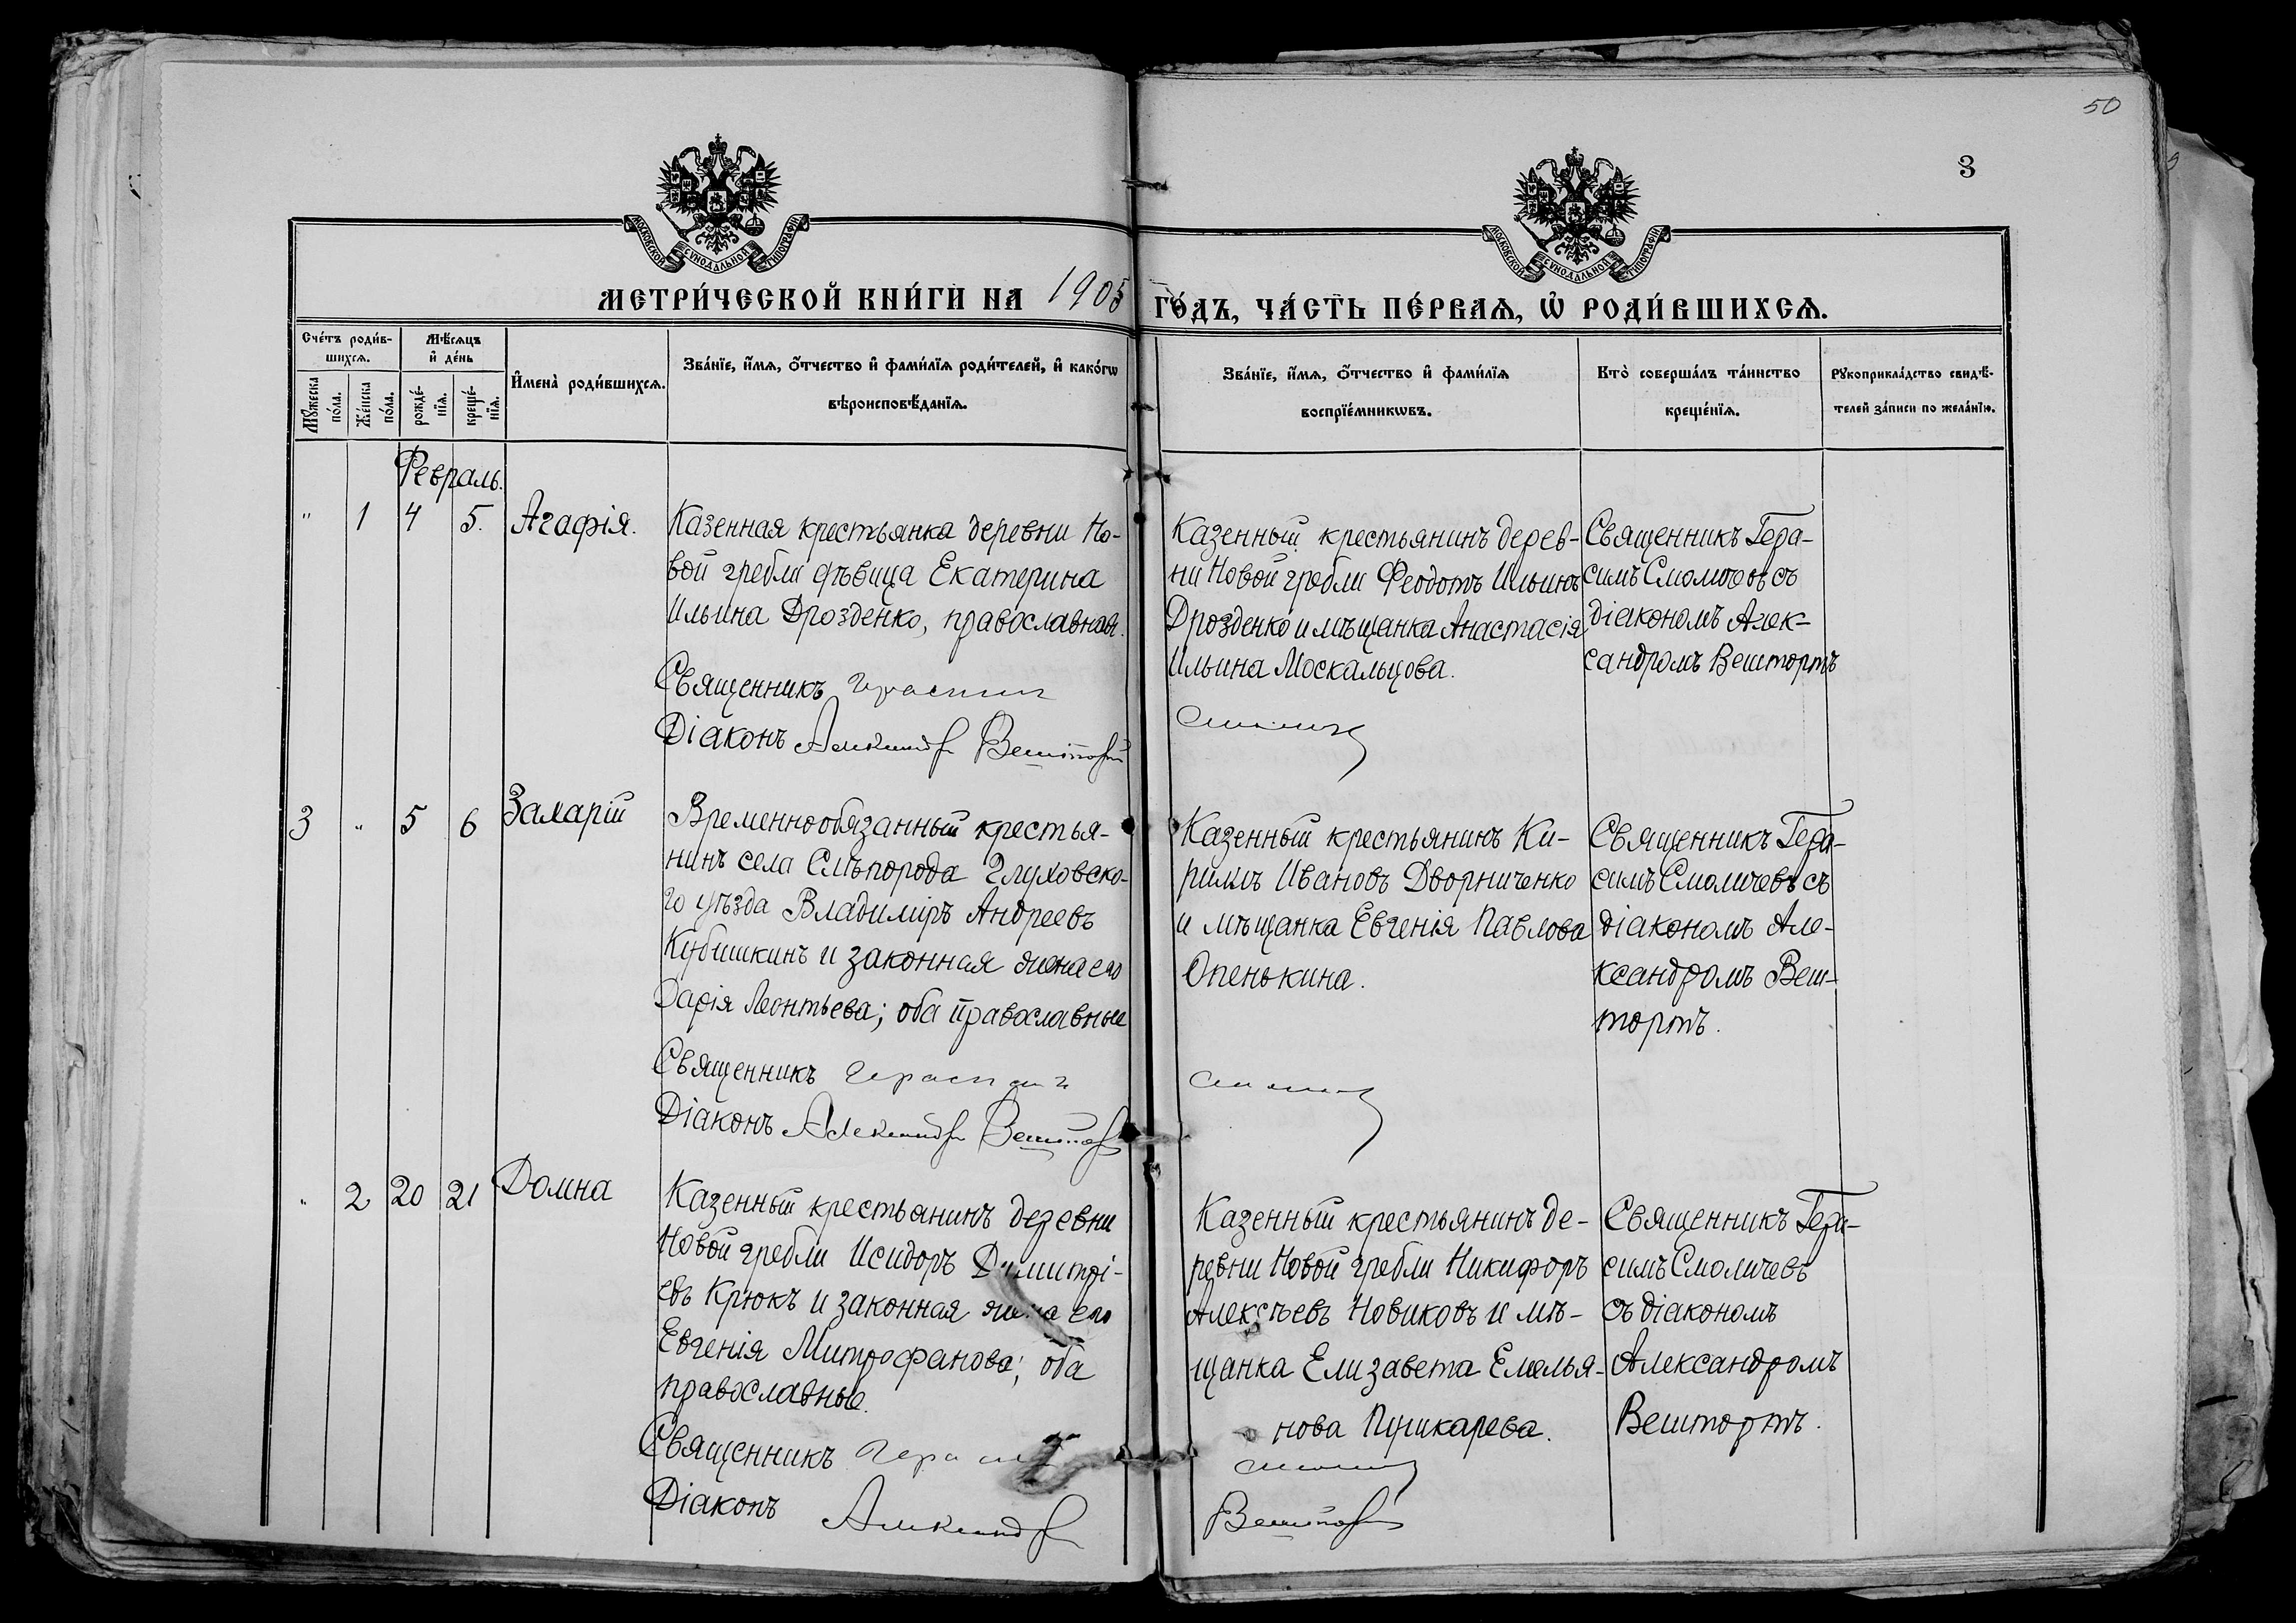 50
3
МОСКОВСКОЙ СѴНОДАЛЬНОЙ ТИПОГРАФІИ
МОСКОВСКОЙ СѴНОДАЛЬНОЙ ТИПОГРАФІИ
МЕТРИ́ЧЕСКОЙ КНИ́ГИ НА 1905 ГО́ДЪ, ЧА́СТЬ ПЕ́РВАѦ, Ѡ҆ РОДИ́ВШИХСѦ.
Сче́тъ роди́в-
шихсѧ.
Мѣ́сѧцъ
и҆ де́нь
Мꙋ́жеска
по́ла.
Же́нска
по́ла.
рожде́-
нїѧ.
креще́-
нїѧ.
И҆мена̀ роди́вшихсѧ.
Зва́нїе, и҆́мѧ, ѻ҆́тчество и҆ фами́лїѧ роди́телей, и҆ како́гѡ
вѣроисповѣ́данїѧ.
Зва́нїе, и҆́мѧ, ѻ҆́тчество и҆ фами́лїѧ
воспрїе́мникѡвъ.
Кто̀ соверша́лъ та́инство
креще́нїѧ.
Рꙋкоприкла́дство свидѣ́-
телей за́писи по жела́нїю.
Февраль.
" 1 4 5. Агафія.
Казенная крестьянка деревни Но-
вой гребли дѣвица Екатерина
Ильина Дрозденко, православная.
Священникъ Герасимъ
Діаконъ Александръ Вешторт
Казенный крестьянинъ дерев-
ни Новой гребли Феодотъ Ильинъ
Дрозденко и мѣщанка Анастасія
Ильина Москальцова.
Священникъ Гера-
симъ Смоличевъ съ
діакономъ Алек-
сандромъ Вештортъ
3 " 5 6 Захарій
Временнообязанный крестья-
нинъ села Слѣпорода Глуховско-
го уѣзда Владиміръ Андреевъ
Кубышкинъ и законная жена его
Дарія Леонтьева; оба православные
Священникъ Герасимъ
Діаконъ Александръ Вешторт
Казенный крестьянинъ Ки-
риллъ Ивановъ Дворниченко
и мѣщанка Евгенія Павлова
Опенькина.
Священникъ Гера-
симъ Смоличевъ съ
діакономъ Але-
ксандромъ Веш-
тортъ.
" 2 20 21 Домна
Казенный крестьянинъ деревни
Новой гребли Исидоръ Димитрі-
евъ Крюкъ и законная жена его
Евгенія Митрофанова; оба
православные.
Священникъ Герасимъ
Діаконъ Александръ
Казенный крестьянинъ де-
ревни Новой гребли Никифоръ
Алексѣевъ Новиковъ и мѣ-
щанка Елизавета Емелья-
нова Пушкарева.
Вешторт
Священникъ Гера-
симъ Смоличевъ
съ діакономъ
Александромъ
Вештортъ.